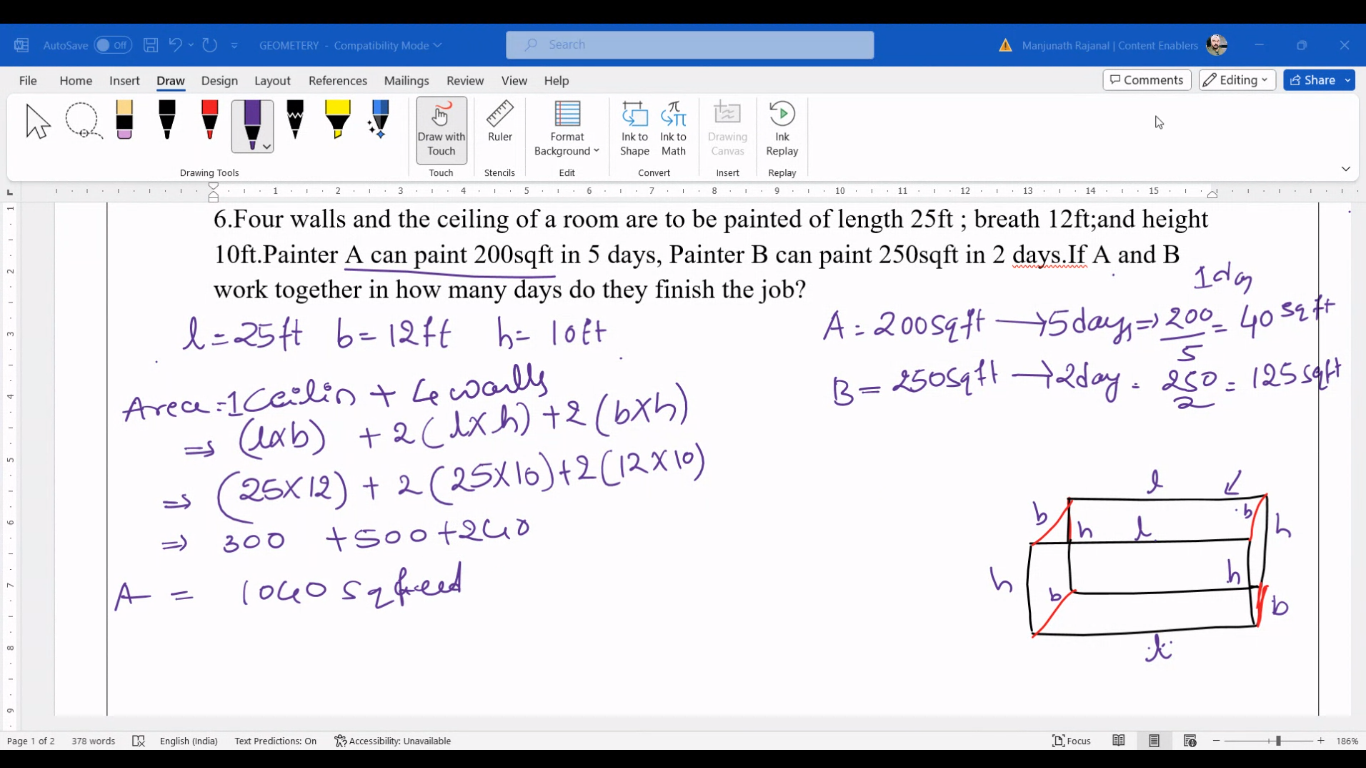 AutoSave Off GEOMETERY - Compatibility Mode Search Manjunath Rajanal | Content Enablers
File Home Insert Draw Design Layout References Mailings Review View Help Comments Editing Share
Draw with Touch Ruler Format Background Ink to Shape Ink to Math Drawing Canvas Ink Replay
Drawing Tools Touch Stencils Edit Convert Insert Replay
1 2 3 4 5 6 7 8 9 10 11 12 13 14 15
6.Four walls and the ceiling of a room are to be painted of length 25ft ; breath 12ft;and height
10ft.Painter A can paint 200sqft in 5 days, Painter B can paint 250sqft in 2 days.If A and B
work together in how many days do they finish the job?
1 day
l = 25ft b = 12ft h = 10ft
A = 200sqft → 5days => 200/5 = 40 sqft
B = 250sqft → 2day = 250/2 = 125 sqft
Area = 1 Ceilin + 4 walls
=> (l×b) + 2(l×h) + 2(b×h)
=> (25×12) + 2(25×10) + 2(12×10)
=> 300 + 500 + 240
A = 1040 sq
l
b h l b h
h h
b b
l
Page 1 of 2 378 words English (India) Text Predictions: On Accessibility: Unavailable Focus 186%